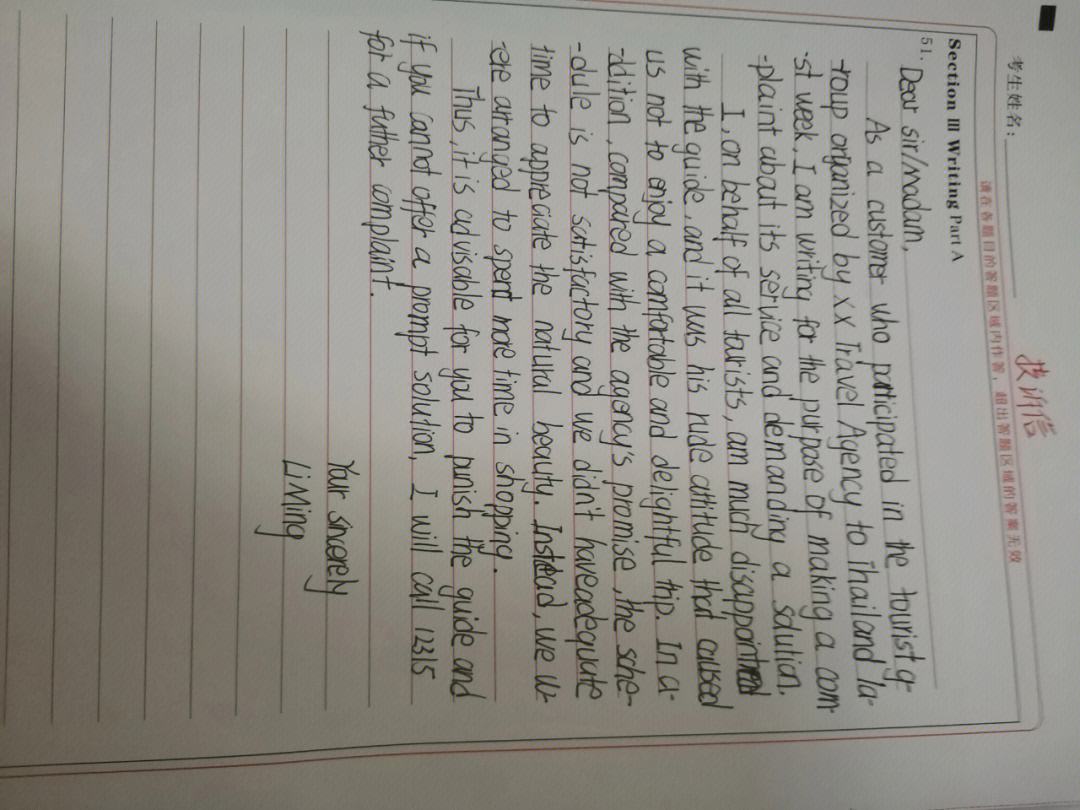 考生姓名:
投诉信
请在各题目的答题区域内作答,超出答题区域的答案无效
Section III Writing Part A
51.
Dear sir/Madam,
As a customer who participated in the tourist g-
-roup organized by XX Travel Agency to Thailand la-
-st week, I am writing for the purpose of making a com-
-plaint about its service and demanding a solution.
I, on behalf of all tourists, am much disappointed
with the guide, and it was his rude attitude that caused
us not to enjoy a comfortable and delightful trip. In a-
-ddition, compared with the agency's promise, the sche-
-dule is not satisfactory and we didn't have adequate
time to appreciate the natural beauty. Instead, we w-
-ere arranged to spent more time in shopping.
Thus, it is advisable for you to punish the guide and
if you cannot offer a prompt solution, I will call 12315
for a futher complaint.
Your sincerely
Li Ming